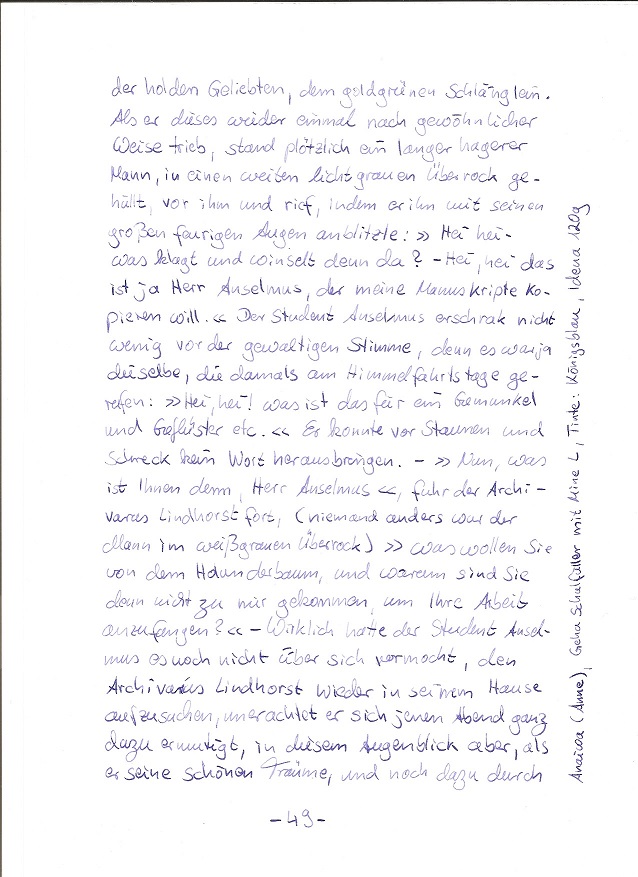 der holden Geliebten, dem goldgrünen Schlänglein.
Als er dieses wieder einmal nach gewöhnlicher
Weise trieb, stand plötzlich ein langer hagerer
Mann, in einen weiten lichtgrauen Überrock ge-
hüllt, vor ihm und rief, indem er ihn mit seinen
großen feurigen Augen anblitzte: » Hei hei -
was klagt und winselt denn da? - Hei, hei das
ist ja Herr Anselmus, der meine Manuskripte ko-
pieren will. « Der Student Anselmus erschrak nicht
wenig vor der gewaltigen Stimme, denn es war ja
dieselbe, die damals am Himmelfahrtstage ge-
rufen: » Hei, hei! was ist das für ein Gemunkel
und Geflüster etc. « Er konnte vor Staunen und
Schreck kein Wort herausbringen. - » Nun, was
ist Ihnen denn, Herr Anselmus «, fuhr der Archi-
varius Lindhorst fort, (niemand anders war der
Mann im weißgrauen Überrock) » was wollen Sie
von dem Holunderbaum, und warum sind Sie
denn nicht zu mir gekommen, um Ihre Arbeit
anzufangen? « - Wirklich hatte der Student Ansel-
mus es noch nicht über sich vermocht, den
Archivarius Lindhorst wieder in seinem Hause
aufzusuchen, unerachtet er sich jenen Abend ganz
dazu ermutigt, in diesem Augenblick aber, als
er seine schönen Träume, und noch dazu durch
- 49 -
(Anne), Geha Schulfüller mit Mine L, Tinte: Königsblau, Idena 120g